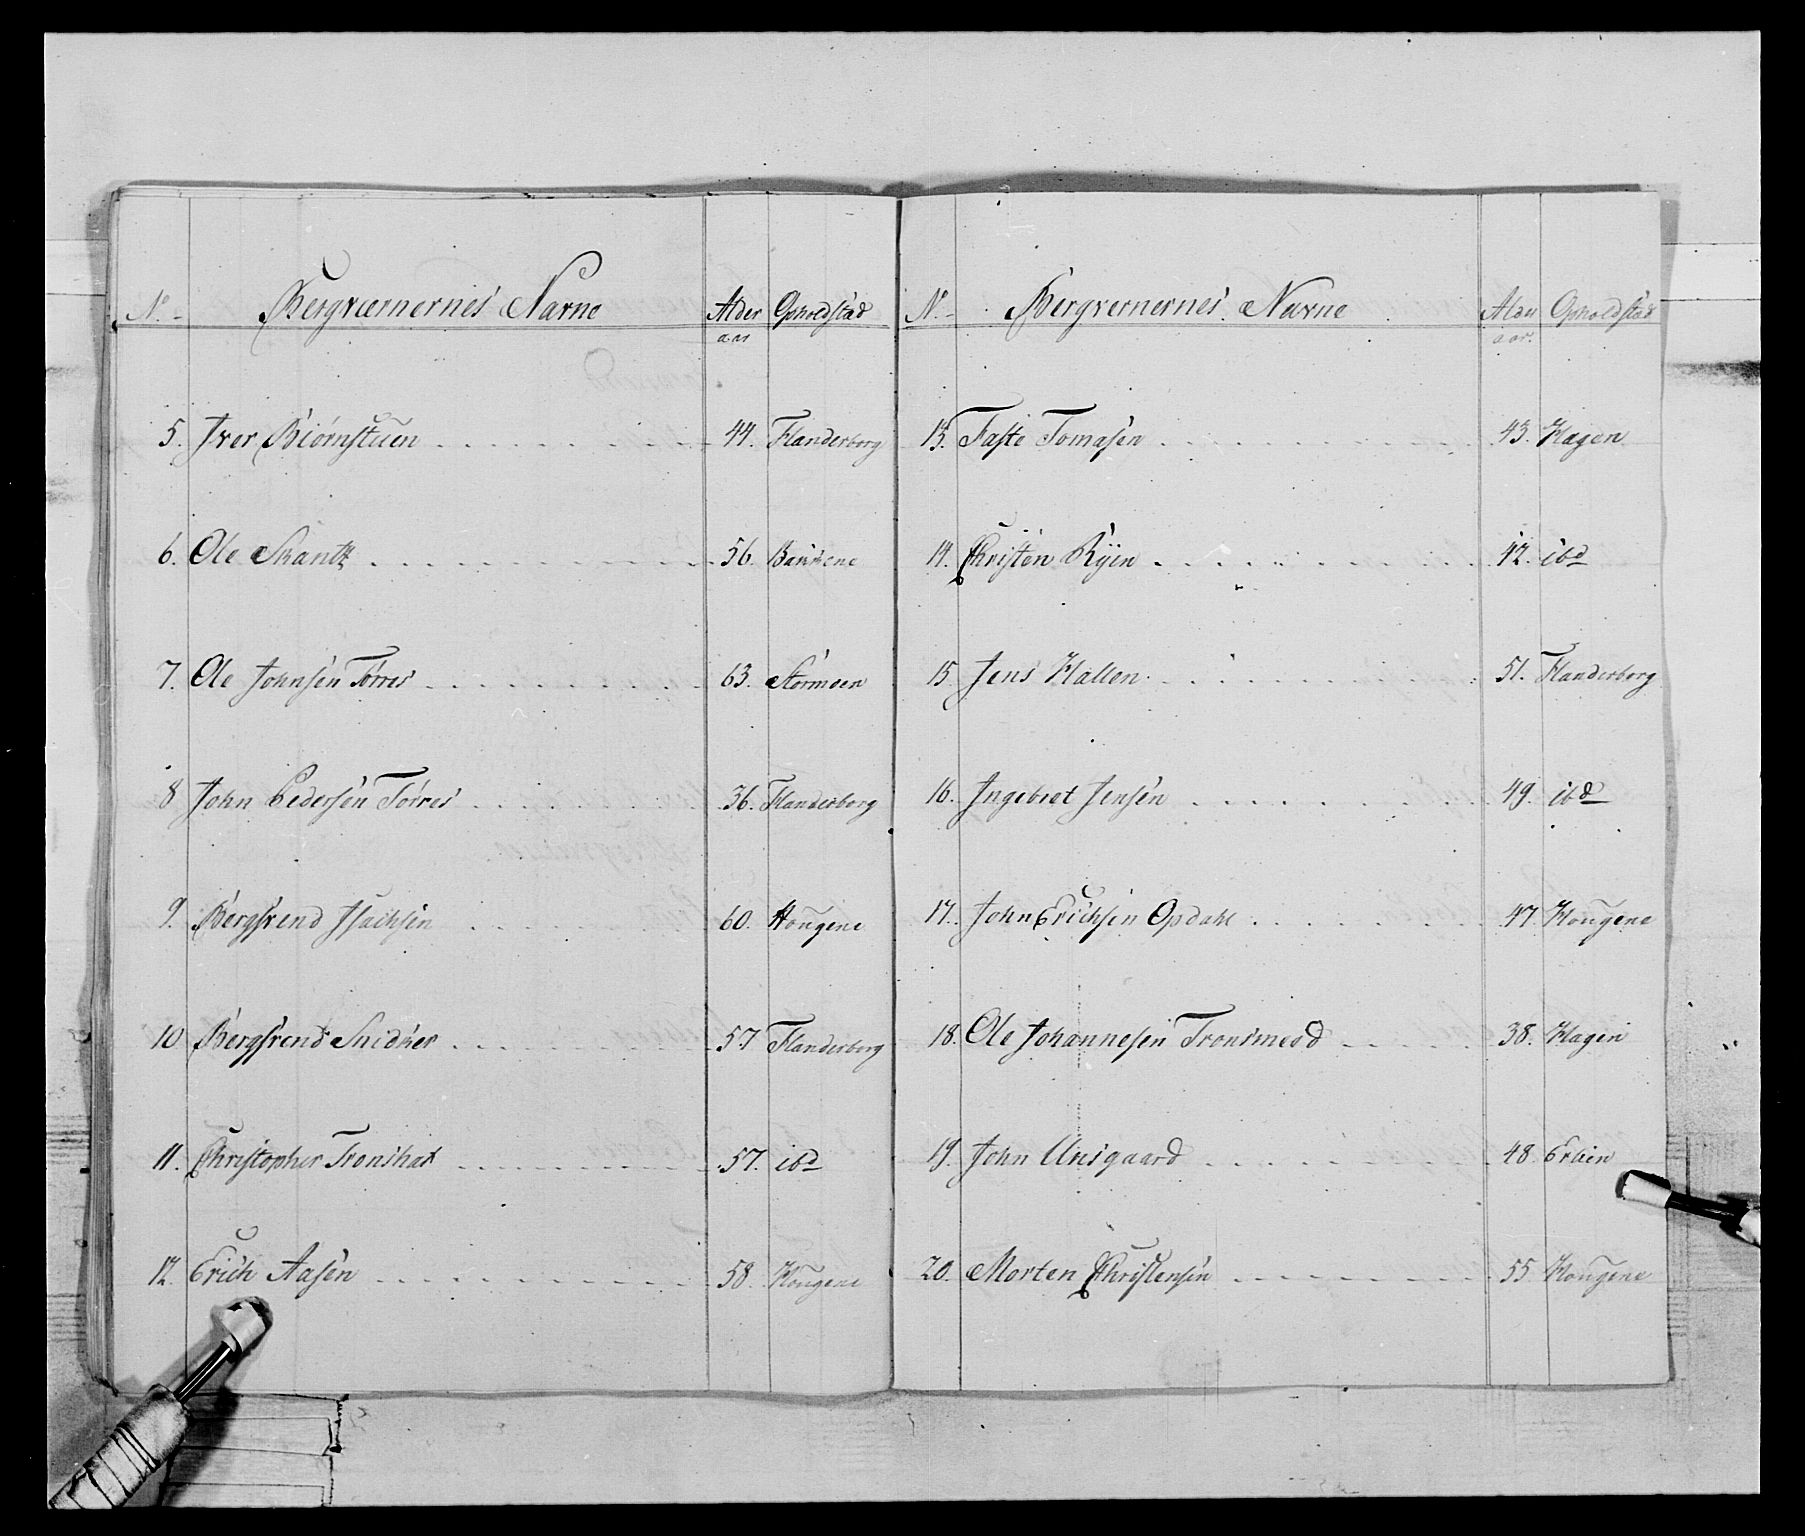 No. Bergværnernes Navne Alder Opholdstæd
aar
5. Iver Biörnstuen 44. Flanderborg
6. Ole Skantz 56. Bakkene
7. Ole Johnsen Törres 63. Stormoen
8 John Pedersen Törres 36. Flanderborg
9. Bergsvend Isachsen 60. Hougene
10 Bergsvend Snidker 57 Flanderborg
11. Christopher Tronshat 57. ibd
12. Erich Aasen 58. Hougene
No. Bergvernernes Navne Alder Opholdstæd
aar.
13. Faste Tomasen 43. Hagen
14. Christen Ryen 42. ibd
15. Jens Hallen 51. Flanderborg
16. Ingebret Jensen 49. ibd
17. John Erichsen Opdahl 47 Hougene
18. Ole Johannesen Tronsmeod 38. Hagen
19. John Unsgaard 48
20. Morten Christensen 55 Hougene